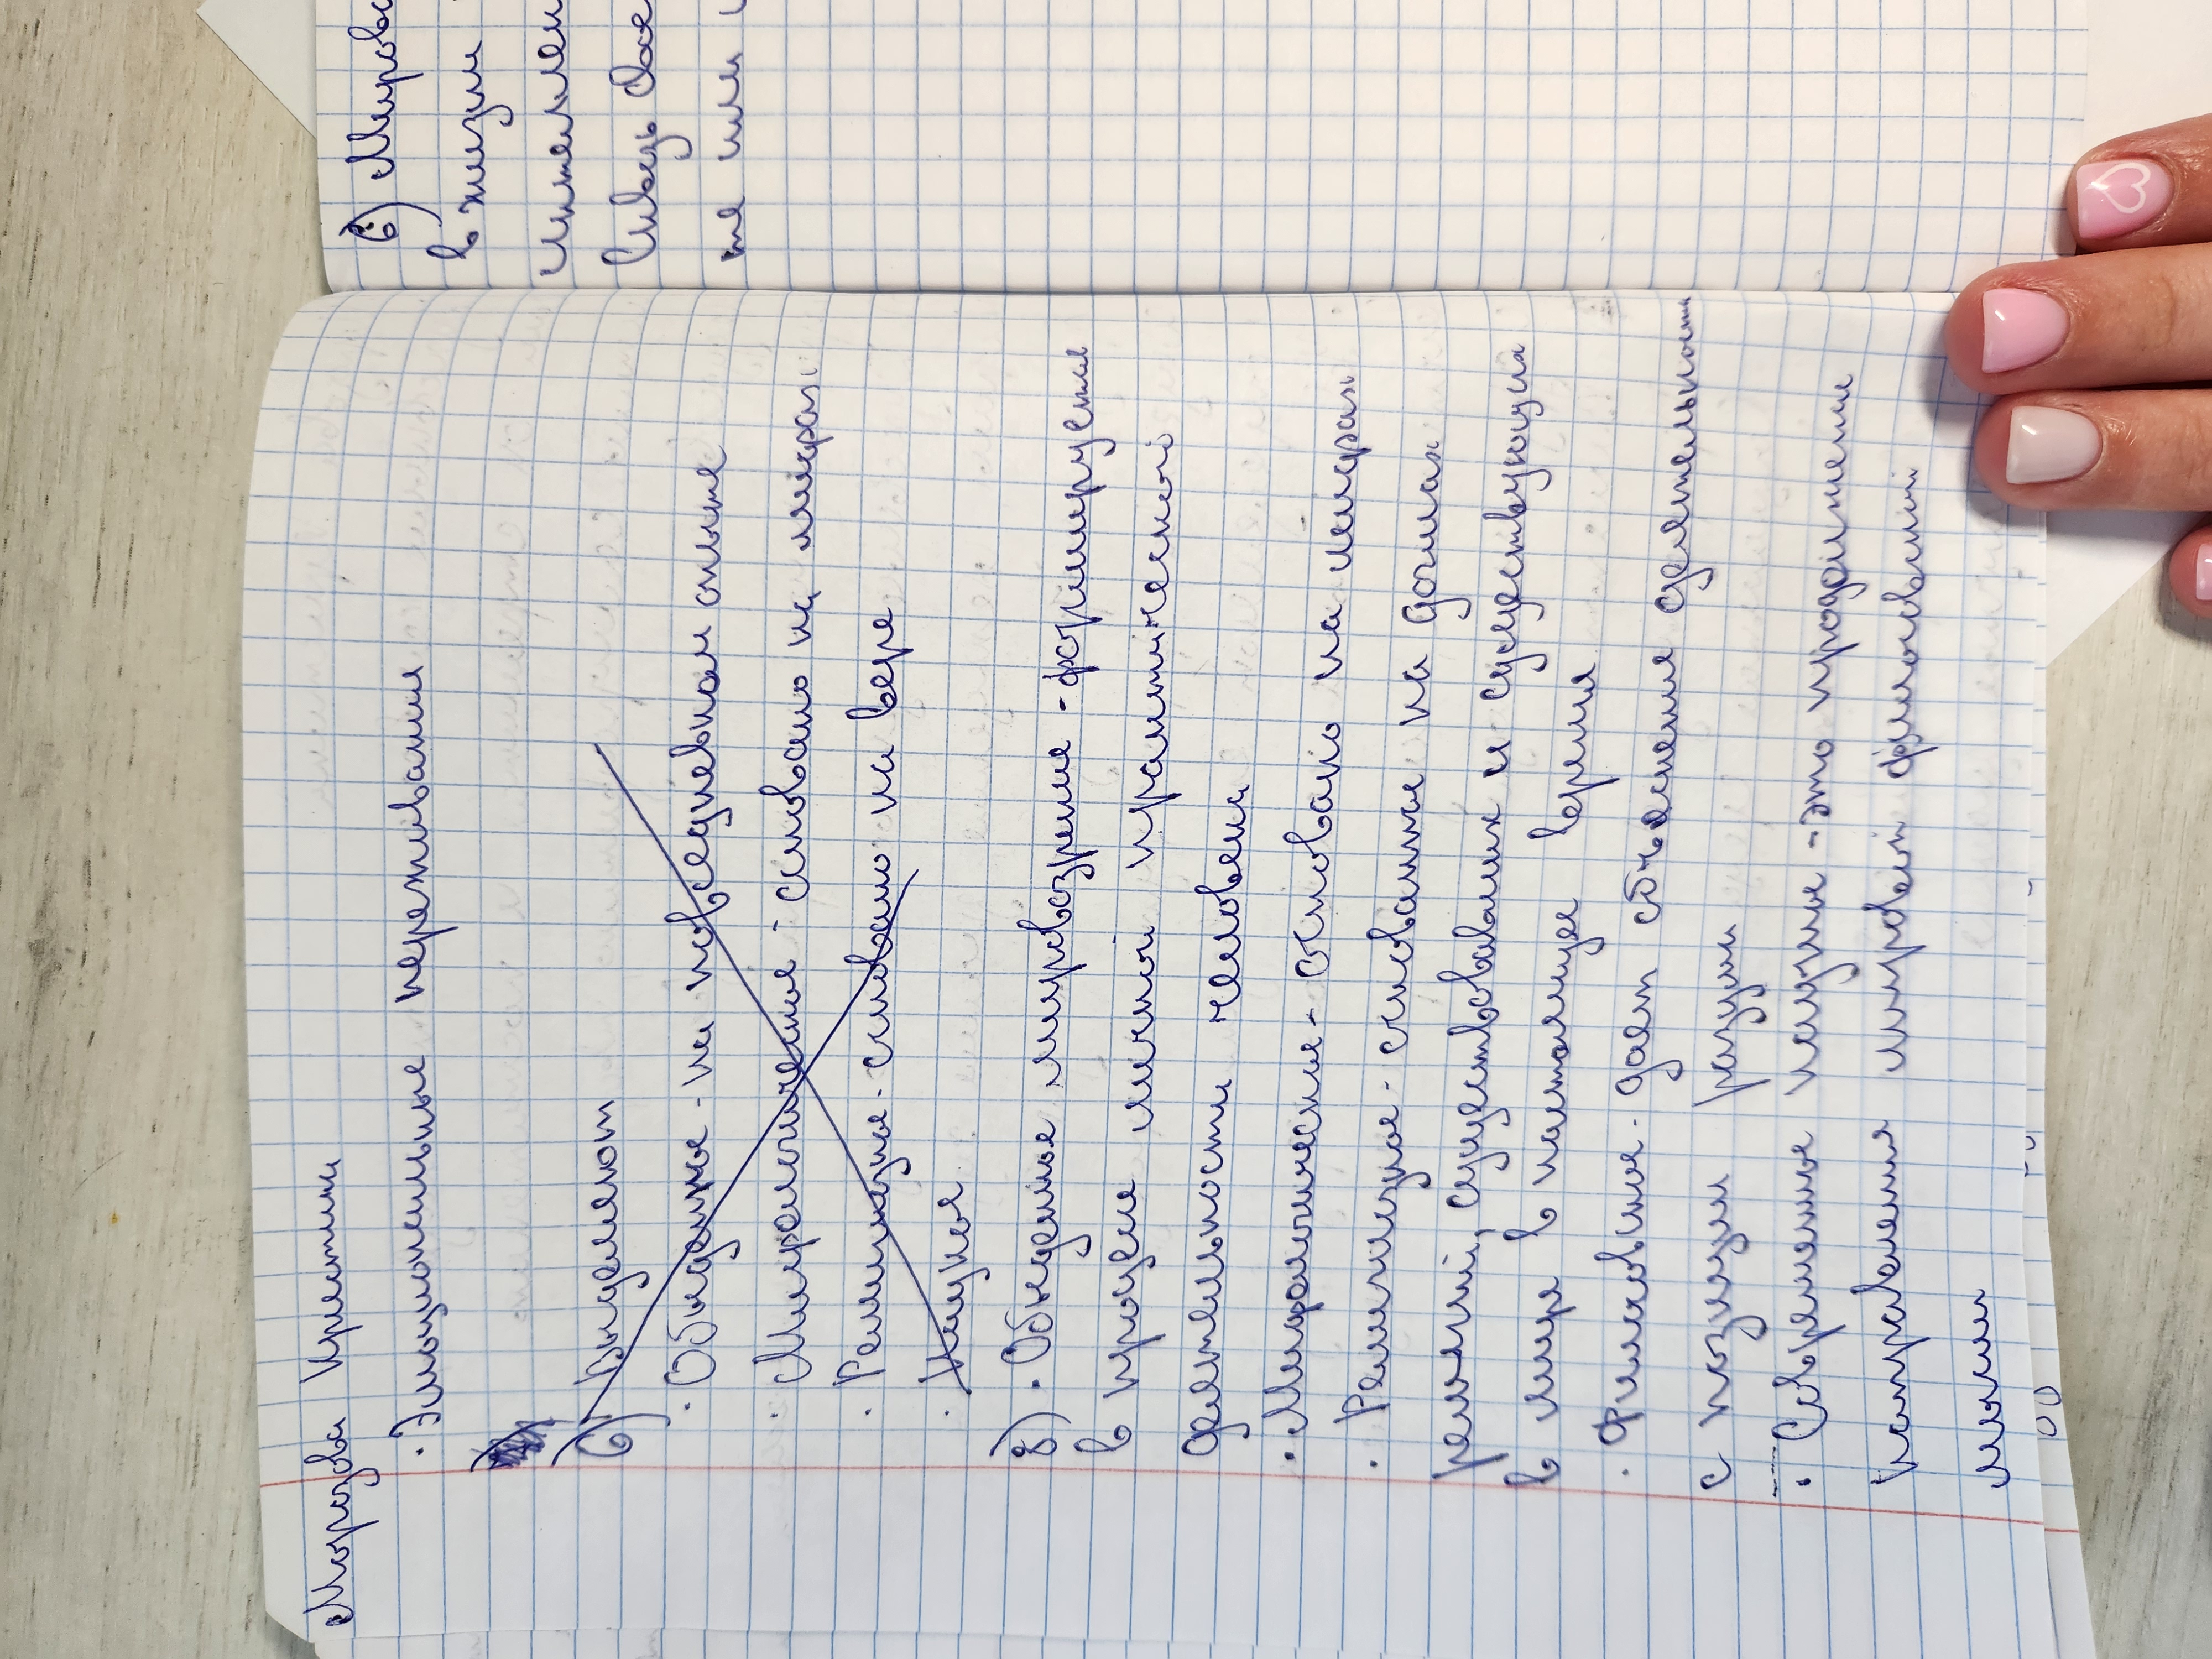 Морозова Кристина
· Эмоциональные переживания
6) Выделяют
· Обыденное - на повседневном опыте
· Мифологичное - основано на мифах
· Религиозное - основано на вере
· Научное
8) · Обыденное мировоззрение - формируется
в процессе личной практической
деятельности человека
· Мифологическое - основано на мифах
· Религиозное - основанное на догмах
религий, существования и существующих
в мире в настоящее время
· Философское - дает объяснение деятельности
с позиции разума
· Современное научное - это продолжение
направления мировой философской
мысли
6) Мирово
в жизни
Связь
не